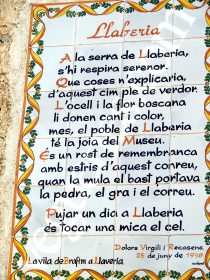 Llaberia
A la serra de Llaberia,
s'hi respira serenor.
Que coses n'explicaria,
d'aquest cim ple de verdor.
L'ocell i la flor boscana
li donen cant i color,
mes, el poble de Llaberia
té la joia del Museu.
És un rost de remembrança
amb estris d'aquest conreu,
quan la mula el bast portava
la pedra, el gra i el correu.
Pujar un dia a Llaberia
és tocar una mica el cel.
Dolors Virgili i Recasens.
25 de juny de 1998
La vila de Brafim a Llaveria